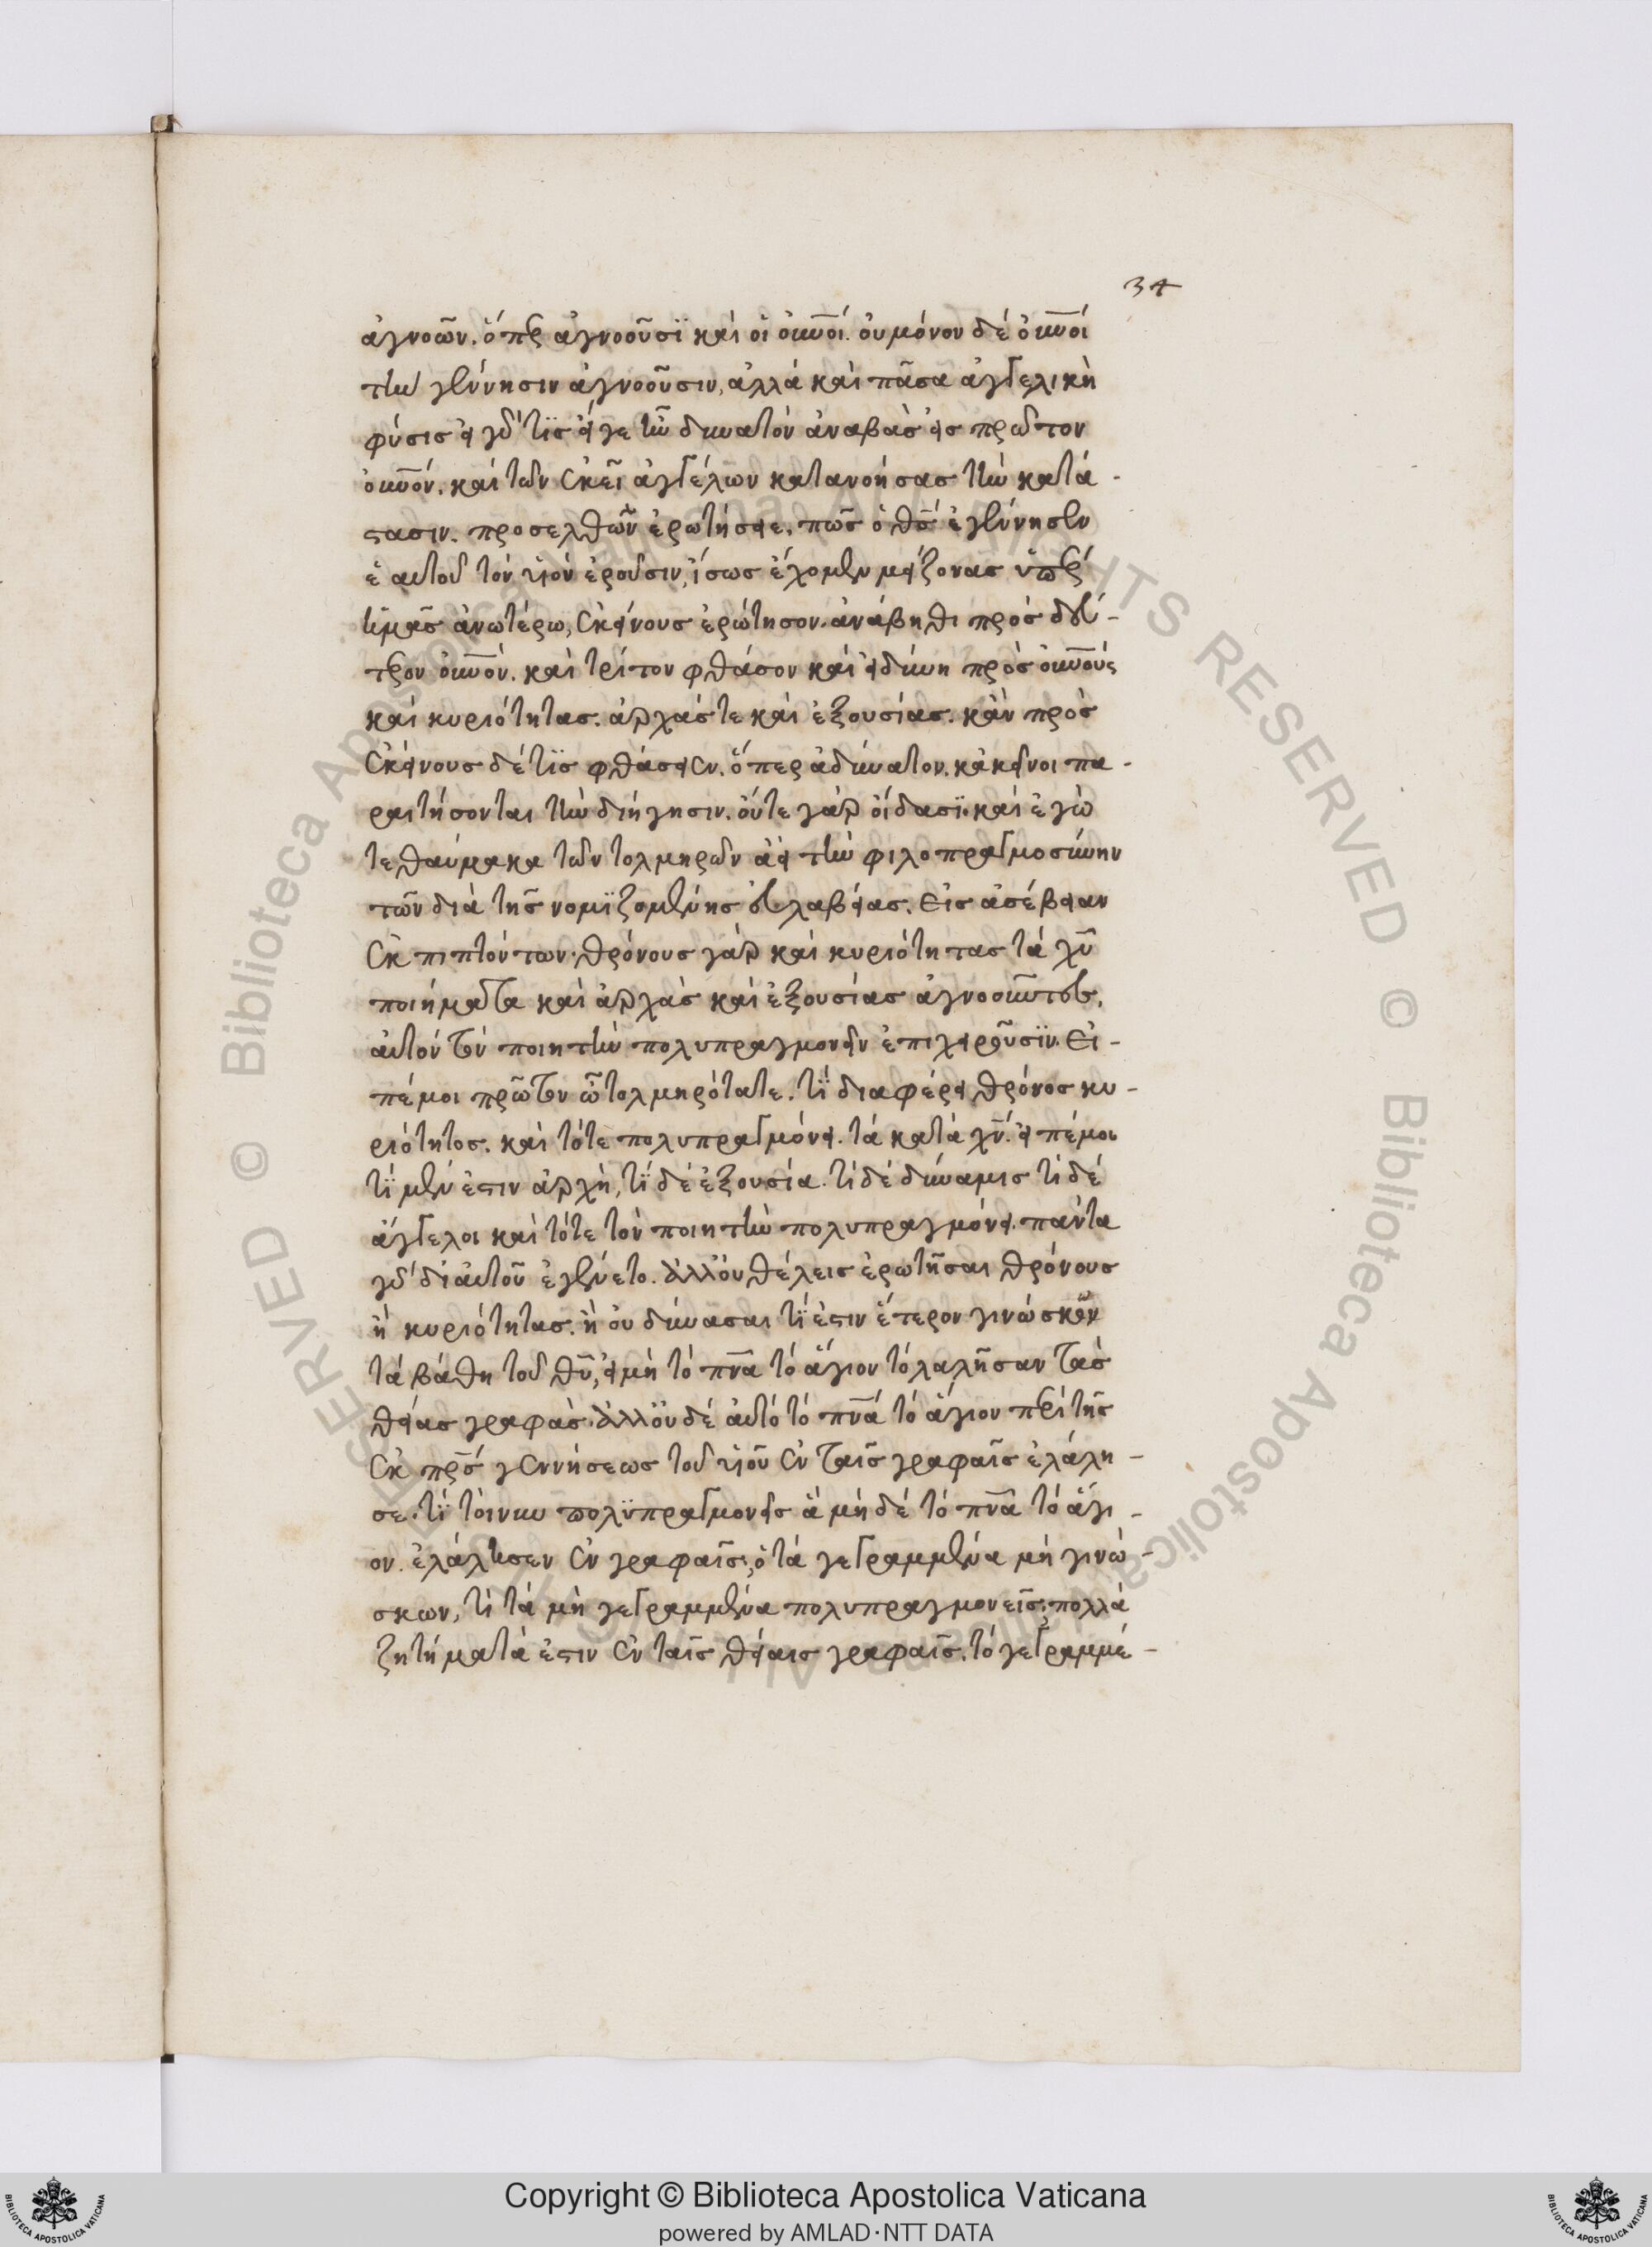 34
ἀγνοῶν. ὅπερ ἀγνοοῦσϊ καὶ οἱ οὐνοί. οὐ μόνον δέ ὀυνοί
τὴν γέννησιν ἀγνοοῦσιν, ἀλλὰ καὶ πᾶσα ἀγγελικὴ
φύσις εἰ γὰρ τϊς εἴγε ἦν δυνατὸν ἀναβὰς εἰς πρῶτον
οὐνόν. καὶ τῶν ἐκεῖ ἀγγέλων κατανοήσας τὴν κατά -
στασιν. προσελθὼν ἐρωτήσειε. πῶς ὁ θς ἐγέννησεν
ἑαυτοῦ τὸν υἱὸν ἐροῦσιν, ἴσως ἔχομεν μείζονας ὑπὲρ
ἡμᾶς ἀνωτέρω, ἐκείνους ἐρώτησον. ἀνάβηθι πρὸς δεύ -
τερον οὐνόν. καὶ τρίτον φθάσον καὶ εἰ δύνῃ πρὸς οὐνούς
καὶ κυριότητας. ἀρχάς τε καὶ ἐξουσίας. κἂν πρὸς
ἐκείνους δέ τϊς φθάσειεν. ὅπερ ἀδύνατον. κἀκεῖνοι πα -
ραιτήσονται τὴν διήγησιν. οὔτε γὰρ οἴδασϊ. καὶ ἐγὼ
τεθαύμακα τῶν τολμηρῶν ἀεὶ τὴν φιλοπραγμοσύνην
τῶν διὰ τῆς νομϊζομένης εὐλαβείας. εἰς ἀσέβειαν
ἐκπιπτόντων. θρόνους γὰρ καὶ κυριότητας τά χυ
ποιήματα καὶ ἀρχὰς καὶ ἐξουσίας ἀγνοοῦντες.
αὐτόν τὸν ποιητὴν πολυπραγμονεῖν ἐπιχειροῦσϊν. Εἰ -
πέ μοι πρῶτον ὦ τολμηρότατε. τϊ διαφέρει θρόνος κυ -
ριότητος. καὶ τότε πολυπραγμόνει. τά κατὰ χν. εἰπέ μοι
τϊ μέν ἐστιν ἀρχὴ, τϊ δὲ ἐξουσία. τί δέ δύναμις τί δέ
ἄγγελοι καὶ τότε τὸν ποιητὴν πολυπραγμόνει. πάντα
γὰρ δι᾽ αὐτοῦ ἐγένετο. ἀλλ᾽ οὐ θέλεις ἐρωτῆσαι θρόνους
ἢ κυριότητας. ἢ οὐ δύνασαι τϊ ἐστιν ἕτερον γινώσκον
τά βάθη τοῦ θυ, εἰ μὴ τὸ πνα τό ἅγιον τό λαλῆσαν τάς
θείας γραφάς. ἀλλ᾽ οὐδέ αὐτό τό πνα τό ἅγιον περὶ τῆς
ἐκ πρς γεννήσεως τοῦ υἱοῦ ἐν ταῖς γραφαῖς ἐλάλη -
σε. τϊ τοίνυν πολϋπραγμονεῖς ἅ μὴ δέ τό πνα τό ἅγι -
ον. ἐλάλησεν ἐν γραφαῖς, ὁ τά γεγραμμένα μὴ γινώ -
σκων, τί τά μὴ γεγραμμένα πολυπραγμονεῖς; πολλά
ζητήματά ἐστιν ἐν ταῖς θείαις γραφαῖς. τό γεγραμμέ -
Copyright © Biblioteca Apostolica Vaticana
powered by AMLAD·NTT DATA